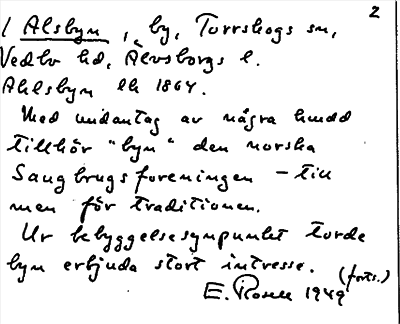 2
1 Alsbyn, by, Torrskogs sn,
Vedbo hd, Älvsborgs l.
Ahlsbyn lk 1864.
Med undantag av några hundd
tillhör "byn" den norska
Saugbrugsforeningen – till
men för traditionen.
Ur bebyggelsesynpunkt torde
byn erbjuda stort intresse.
(forts.)
E. Rosell 1949